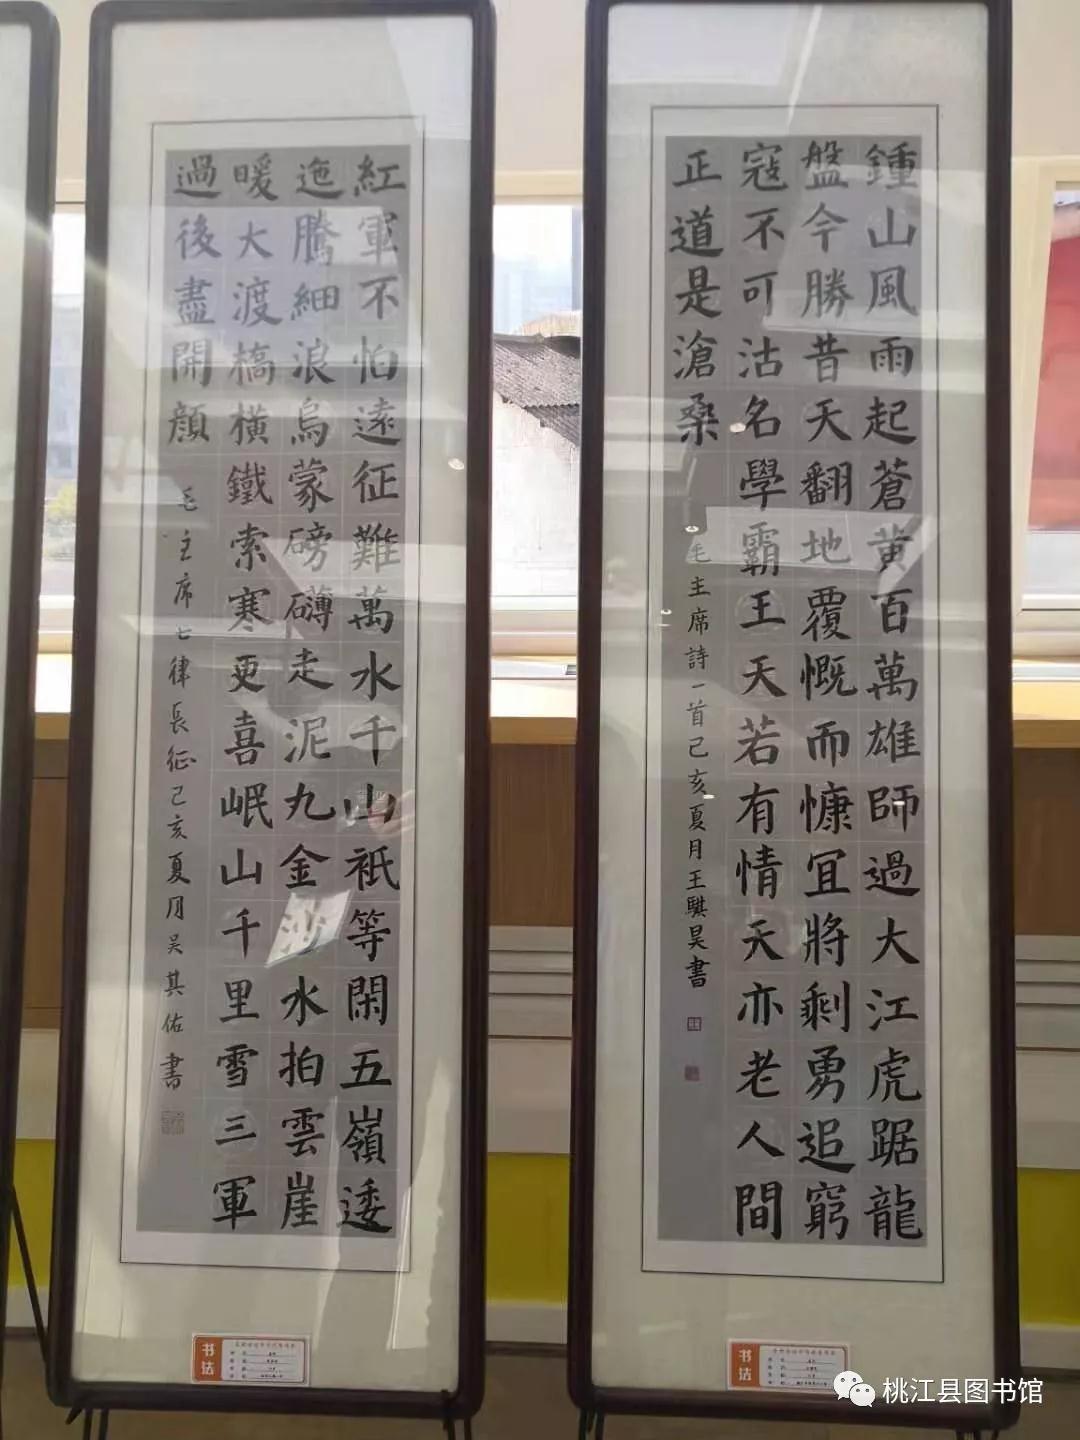 鍾山風雨起蒼黄百萬雄師過大江虎踞龍
盤今勝昔天翻地覆慨而慷宜將剩勇追窮
寇不可沽名學霸王天若有情天亦老人間
正道是滄桑
毛主席詩一首己亥夏月王騏昊書
紅軍不怕遠征難萬水千山衹等閑五嶺逶
迤騰細浪烏蒙磅礴走泥丸金沙水拍雲崖
暖大渡橋橫鐵索寒更喜岷山千里雪三軍
過後盡開顔
毛主席七律長征己亥夏月吴其佑書
书法
书法
桃江县图书馆